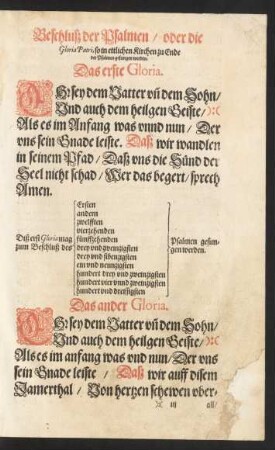 Beschluß der Psalmen / oder die
Gloria Patri, so in ettlichen Kirchen zu Ende
der Psalmen gesungen werden.
Das erste Gloria.
EHr sey dem Vatter vñ dem Sohn /
Vnd auch dem heilgen Geiste /
Als es im Anfang was vnnd nun / Der
vns sein Gnade leiste. Daß wir wandlen
in seinem Pfad / Daß vns die Sünd der
Seel nicht schad / Wer das begert / sprech
Amen.
Diß erst Gloria mag
zum Beschluß des
Ersten
andern
zwelfften
vierzehenden
fünffzehenden
drey vnd zwenzigsten
drey vnd sibenzigsten
ein vnd neunzigsten
hundert drey vnd zwenzigsten
hundert vier vnnd zwenzigsten
hundert vnd dreissigsten
Psalmen gesun-
gen werden.
Das ander Gloria.
EHr sey dem Vatter vñ dem Sohn /
Vnd auch dem heilgen Geiste /
Als es im anfang was vnd nun / Der vns
sein Gnade leiste / Daß wir auff disem
Jamerthal / Von hertzen schewen vber-
iij
all /